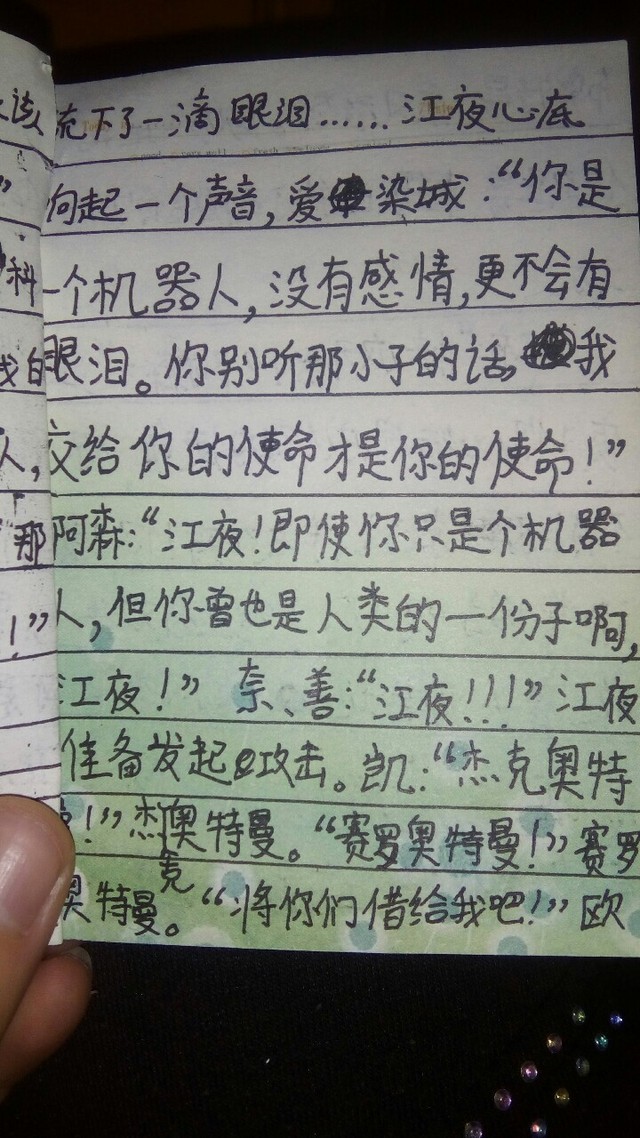 流下了一滴眼泪……江夜心底
响起一个声音，爱染城：“你是
一个机器人，没有感情，更不会有
眼泪。你别听那小子的话，我
交给你的使命才是你的使命！”
阿森：“江夜！即使你只是个机器
人，但你曾也是人类的一份子啊，
江夜！”奈、善：“江夜！！！”江夜
准备发起攻击。凯：“杰克奥特
！”杰克奥特曼。“赛罗奥特曼！”赛罗
奥特曼。“将你们借给我吧！”欧
该
”
科
我自
人，
那
！”